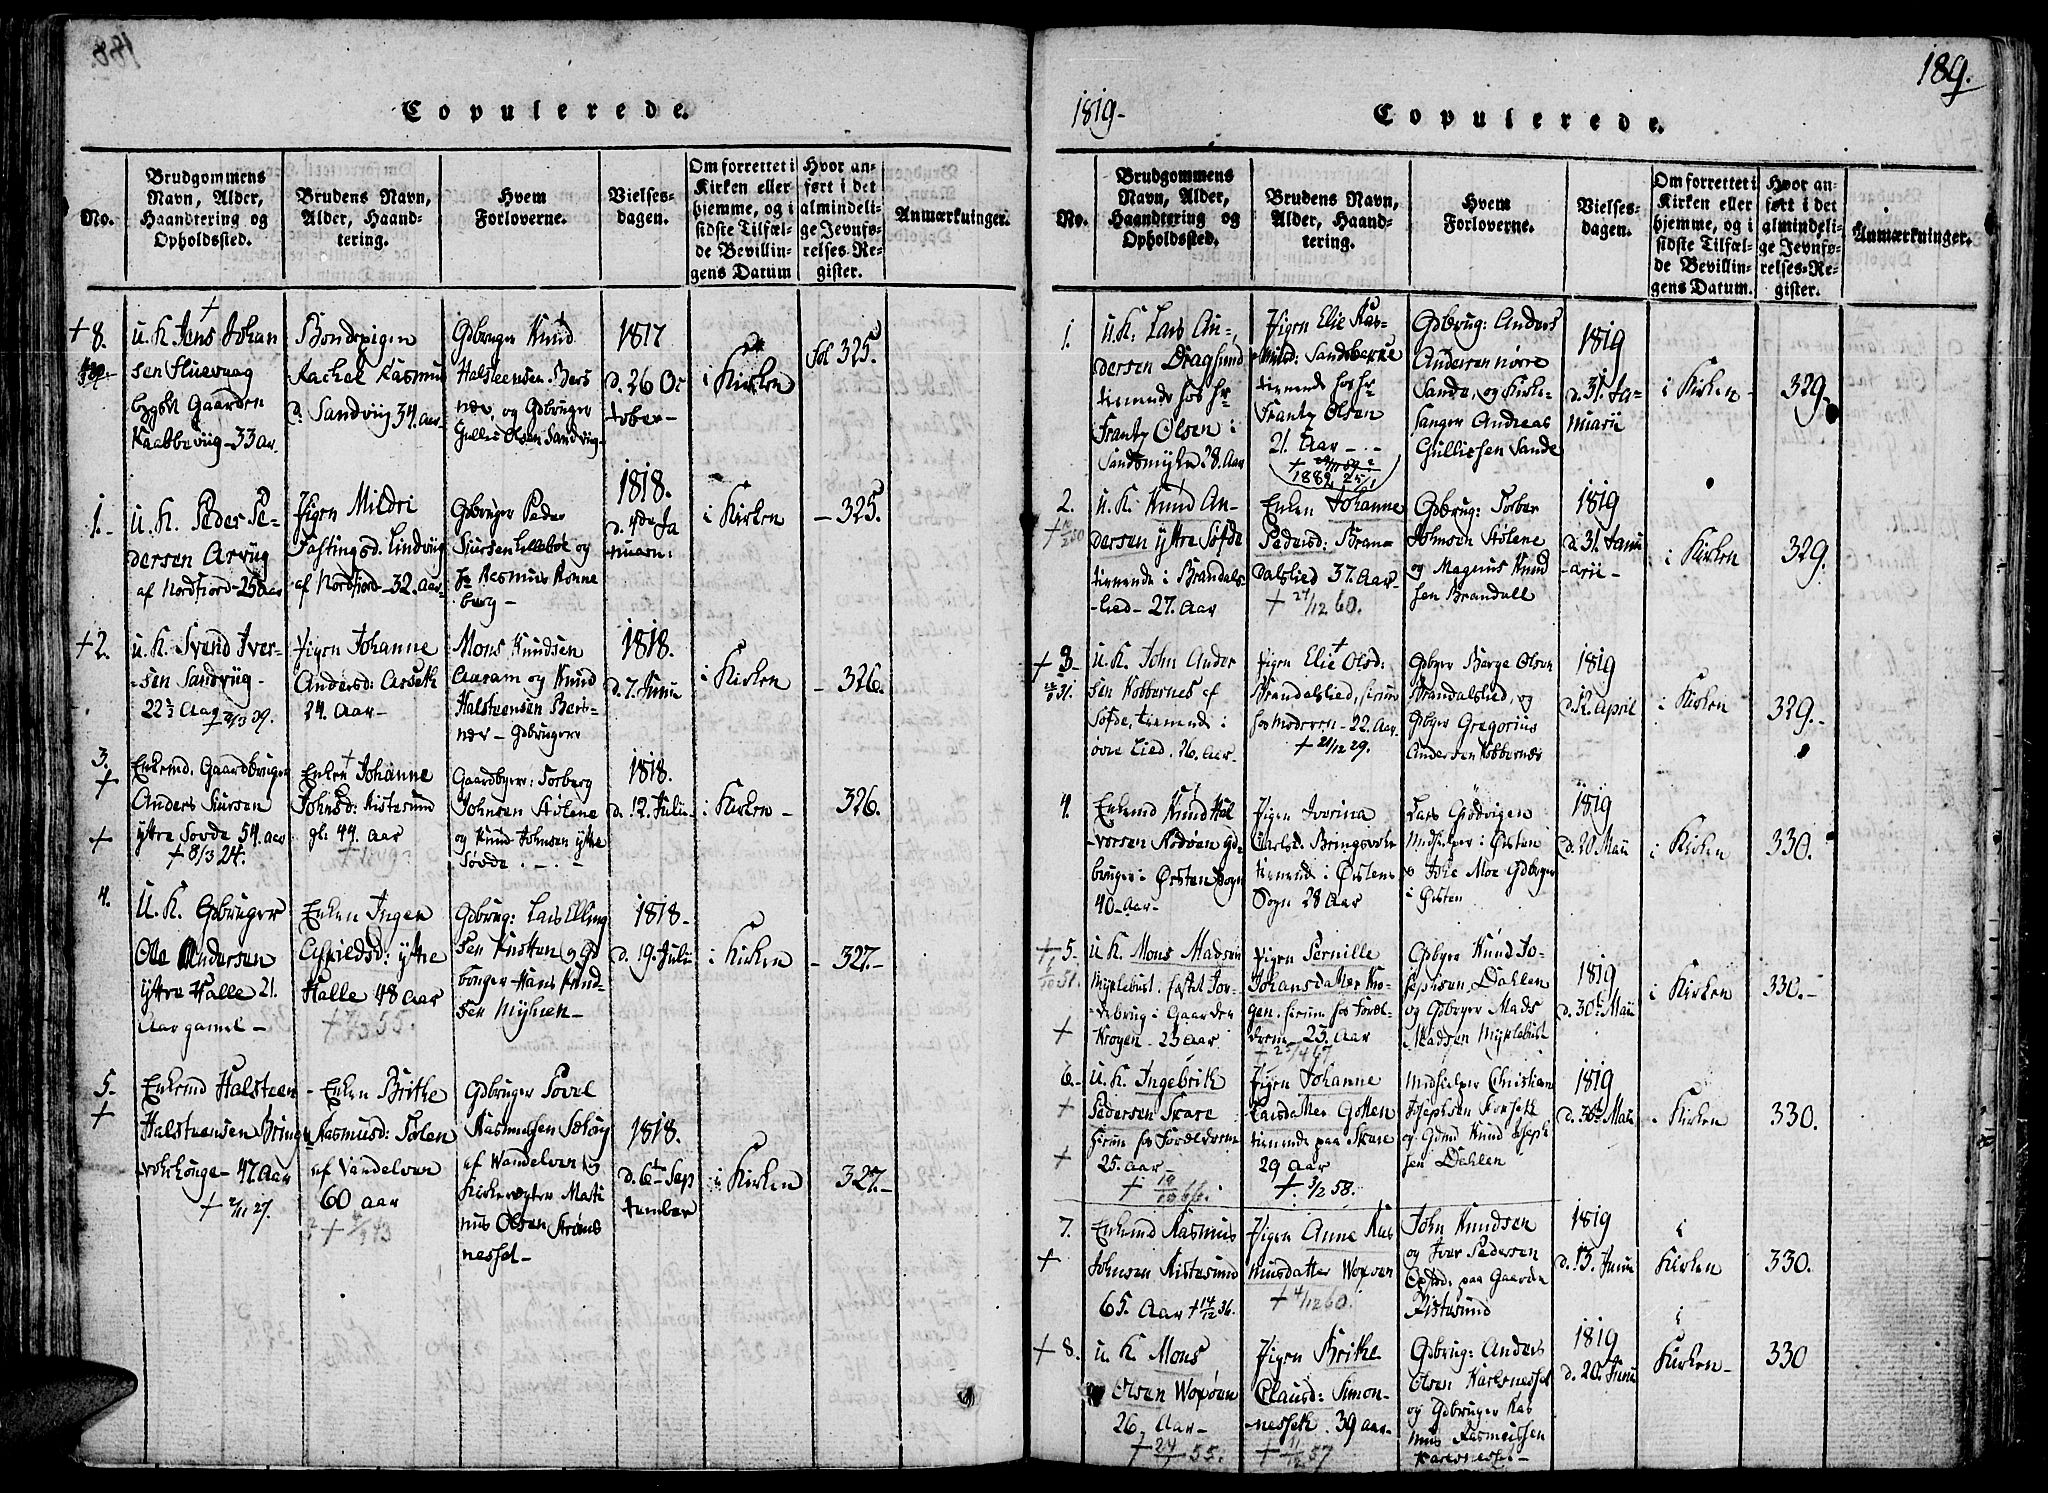 188.
Copulerede.
No.
Brudgommens Navn, Alder, Haandtering og Opholdssted.
Brudens Navn, Alder, Haandtering.
Hvem Forloverne.
Vielsesdagen.
Om forrettet i Kirken eller hjemme, og i sidste Tilfælde Bevillingens Datum
Hvor anført i det almindelige Jevnførelses-Register.
Anmærkninger.
+ 8.
u. K. Jens Johan
sen
bygsl Gaarden
Kaabbeviig - 33 ar.
Bondepigen
Rachel Rasmus
d. Sandviig 34. aar
Gdbruger Knud
Halsteensen Bers
næs, og Gdbruger
Gullic Olsen Sandviig
1817
d. 26 Oc
tober -
i Kirken
Fol 325.
1.
u. K. Peder Pe-
dersen Arviig
af Nordfiord - 25 aar
Pigen Mildri
Fastingsd. Lindviig
af Nordfiord - 32. aar
Gdbruger Peder
Siursen Lillebøe og
Hr Rasmus Rønne
berg -
1818.
d. 4de Ja
nuarii
i Kirken
- 325.
+ 2.
u. K. Svend Iver-
sen Sandviig -
22½ Aar
Pigen Johanne
Andersd: Aarseth
24. Aar -
Mons Knudsen
Aaram og Knud
Halsteensen Bers-
næs - Gdbrugere
1818.
d. 7. Junii
i Kirken
- 326.
3.
+
+
Enkemd. Gaardbruger
Anders Siursen
yttre Søvde 54. aar
+ 8/3 24.
Enken Johanne
Johnsd: Ristesund
gl. 44. aar
Gaardbyer: Torberg
Johnsen Stølene
og Knud Johnsen yttre
Søvde . - . -
1818.
d. 12 Julii
i Kirken -
326.
4.
U. K. Gdbruger
Ole Andersen
yttre Halle 21.
Aar gamel -
Enken Inger
yttre
Halle 48 aar
Gdbrug: Lars Elling
sen Knotten og Gd
bruger Hans Knud
sen Myhren -
1818 -
d. 19. Julii
i Kirken
- 327. -
5.
+
Enkemd Halsteen
Halsteensen Brings
vohrhouge - 47 Aar
+ 2/11 27.
- Enken Brithe
Rasmusd: Solen
af Vandelven
60 aar
Gdbruger Povel
Rasmussen
af Vandelven og
Kirkeværger Marti
nus Olsen Strøms
nesset -
1818.
d. 6te Sep
tember
i Kirken
327. -
189.
1819 -
Copulerede.
No.
Brudgommens Navn, Alder, Haandtering og Opholdssted.
Brudens Navn, Alder, Haandtering.
Hvem Forloverne.
Vielsesdagen.
Om forrettet i Kirken eller hjemme, og i sidste Tilfælde Bevillingens Datum.
Hvor anført i det almindelige Jevnførelses-Register.
Anmærkninger.
1.
u. K. Lars An-
dersen Dragsund
tienende hos Hr
Frantz Olsen i
Sandsmyhr 28. Aar
Pigen Elie Ras-
musd: Sandsberue
tienende hos Hr
Frantz Olsen
21. Aar - . -
Gdbrug: Anders
Andersen nørre
Sande, og Kirke-
sanger Andreas
Gullissen Sande
1819
d. 31. Ja-
nuarii
i Kirken -
329. -
2.
u. K. Knud An-
dersen yttre Søvde
tienende i Brandals-
lied - 27. Aar
Enken Johanne
Pedersd: Bran-
dalslied 37. Aar
+ 27/12 60.
Gdbrug: Torber
Johnsen Stølene
og Magnus Knud
sen Brandall
1819
d. 31. Janu
arii -
i Kirken
329.
+ 3 -
u. K. John Ander
sen Kobbernes af
Søfde, tienende i
øvre Lied. 26. Aar -
Pigen Elie Olsd:
Brandalslied,
hos Moderen - 22. Aar
+ 21/12 29.
Gdbyer Børge Olsen
Brandalslied, og
Gdbyer Gregorius
Andersen Kobbernes
1819
d. 12. April
i Kirken
329. -
4.
Enkemd Knud Hal
vorsen Rødven Gd-
bruger i Ørsten Sogn
40 - Aar -
Pigen Iverina
Carlsd. Bringsvohr
tienende i Ørstens
Sogn 28 Aar
Lars Giødvigen
Medhielper i Ørsten
og Moe Gdbyer
i Ørsten
1819
d. 20 Maii
i Kirken
330.
+ 5
+
u. K. Mons Madsen
Myklebust. fæstet Jor-
debrug i Gaarden
Krogen - 23 aar
Pigen Pernille
Johansdatter Kro-
gen. hiemme hos Foræl-
drene 23. aar
+ 25/4 67
Gdbyer Knud Jo-
sephsen Dahlen
og Gdbyer Mads
Madsen Myklebust
1819
d. 30te Maii
i Kirken
330. -
6 -
+
+
u. K. Ingebrik
Pedersen Skare
hiem hos Forældrene
25. aar -
Pigen Johanne
Larsdatter Gotten
tienende paa Skare
29 Aar
+. 3/2 58.
Medhielper Christian
Josephsen Forseth
og Gdmd Knud Joseph
sen Dahlen
1819
d. 30te Maii
. Kirken
330.
7.
+
Enkemd Rasmus
Johnsen Ristesund
65. Aar + 14/12 36.
Pigen Anne Ras
musdatter Woxøen
+ 4/12 60.
John Knudsen
og Iver Pedersen
Opsid: paa Gaarden
Ristesund
1819
d. 13. Junii
i
Kirken
330.
+ 8.
u. K. Mons
Olsen Woxøen
26. Aar -
Pigen Brithe
Clausd: Simon-
nesseth. 39 aar -
Gdbrug: Anders
Olsen Karesnesset
og Gdbruger Ras
mus Rasmussen
Karesnesset -
1819
d. 20. Junii
i
Kirken -
330